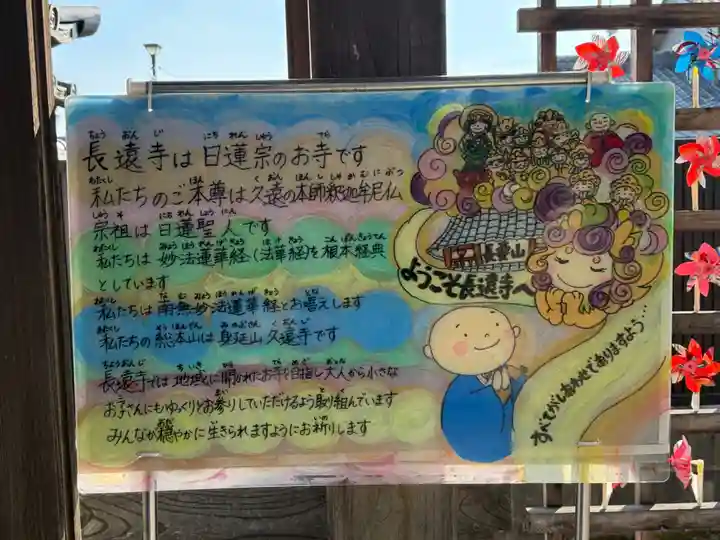 長遠寺は日蓮宗のお寺です
私たちのご本尊は久遠の本師釈迦牟尼仏
宗祖は日蓮聖人です
私たちは妙法蓮華経(法華経)を根本経典
としています
私たちは南無妙法蓮華経とお唱えします
私たちの総本山は身延山久遠寺です
長遠寺では地域に開かれたお寺を目指し大人から小さな
お子さんにもゆっくりとお参りしていただけるよう取り組んでいます
みんなが穏やかに生きられますようにお祈りします
ようこそ長遠寺へ
すべてがしあわせでありますよう…